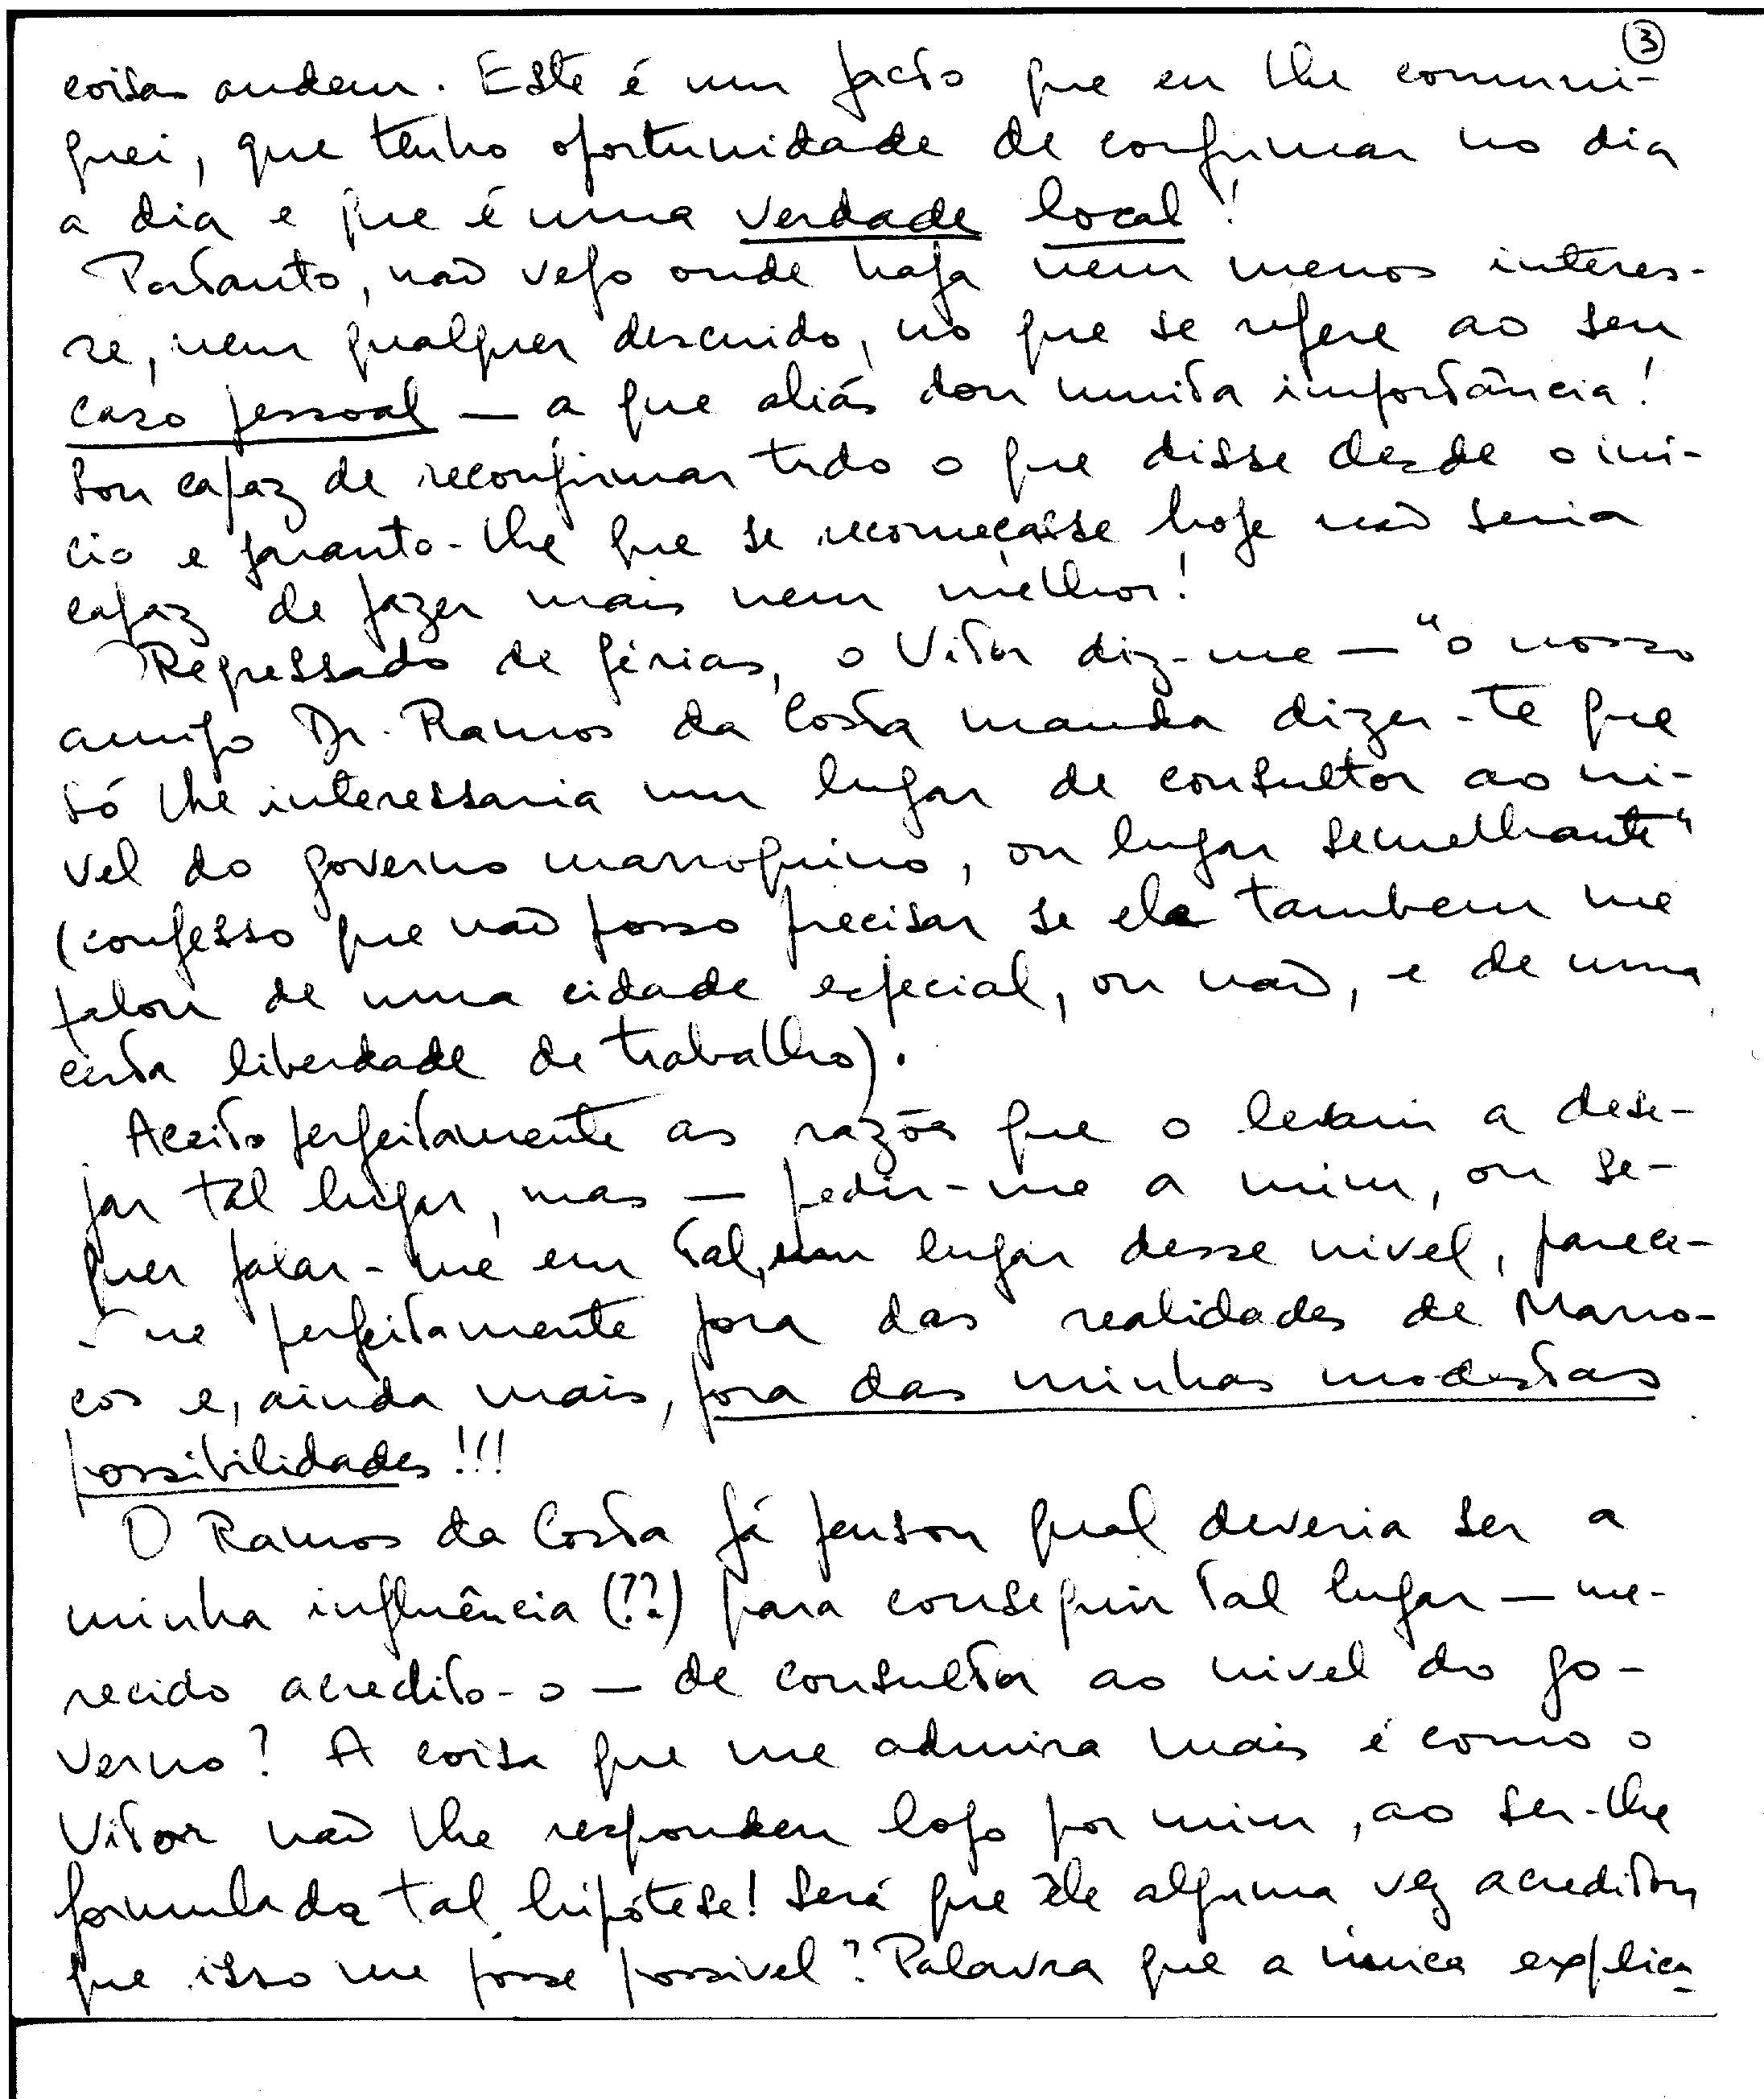 ③
coisas andem. Este é um facto que eu lhe comuni-
quei, que tenho oportunidade de confirmar no dia
a dia e que é uma verdade local!
Portanto, não vejo onde haja nem menos interes-
se, nem qualquer descuido, no que se refere ao seu
caso pessoal — a que aliás dou muita importância!
Sou capaz de reconfirmar tudo o que disse desde o iní-
cio e garanto-lhe que se recomeçasse hoje não seria
capaz de fazer mais nem melhor!
Regressado de férias, o Vitor diz-me — "o nosso
amigo Dr. Ramos da Costa manda dizer-te que
só lhe interessaria um lugar de consultor ao ni-
vel do governo marroquino, ou lugar semelhante"
(confesso que não posso precisar se ele tambem me
falou de uma cidade especial, ou não, e de uma
certa liberdade de trabalho).
Aceito perfeitamente as razões que o levam a dese-
jar tal lugar, mas — pedir-me a mim, ou se-
quer falar-me em tal, um lugar desse nivel, parece-
-me perfeitamente fora das realidades de Marro-
cos e, ainda mais, fora das minhas modestas
possibilidades!!!
O Ramos da Costa já pensou qual deveria ser a
minha influência (??) para conseguir tal lugar — me-
recido acredito-o — de consultor ao nivel do go-
verno? A coisa que me admira mais é como o
Vitor não lhe respondeu logo por mim, ao ser-lhe
formulada tal hipótese! Será que êle alguma vez acreditou
que isso me fosse possivel? Palavra que a única explica-